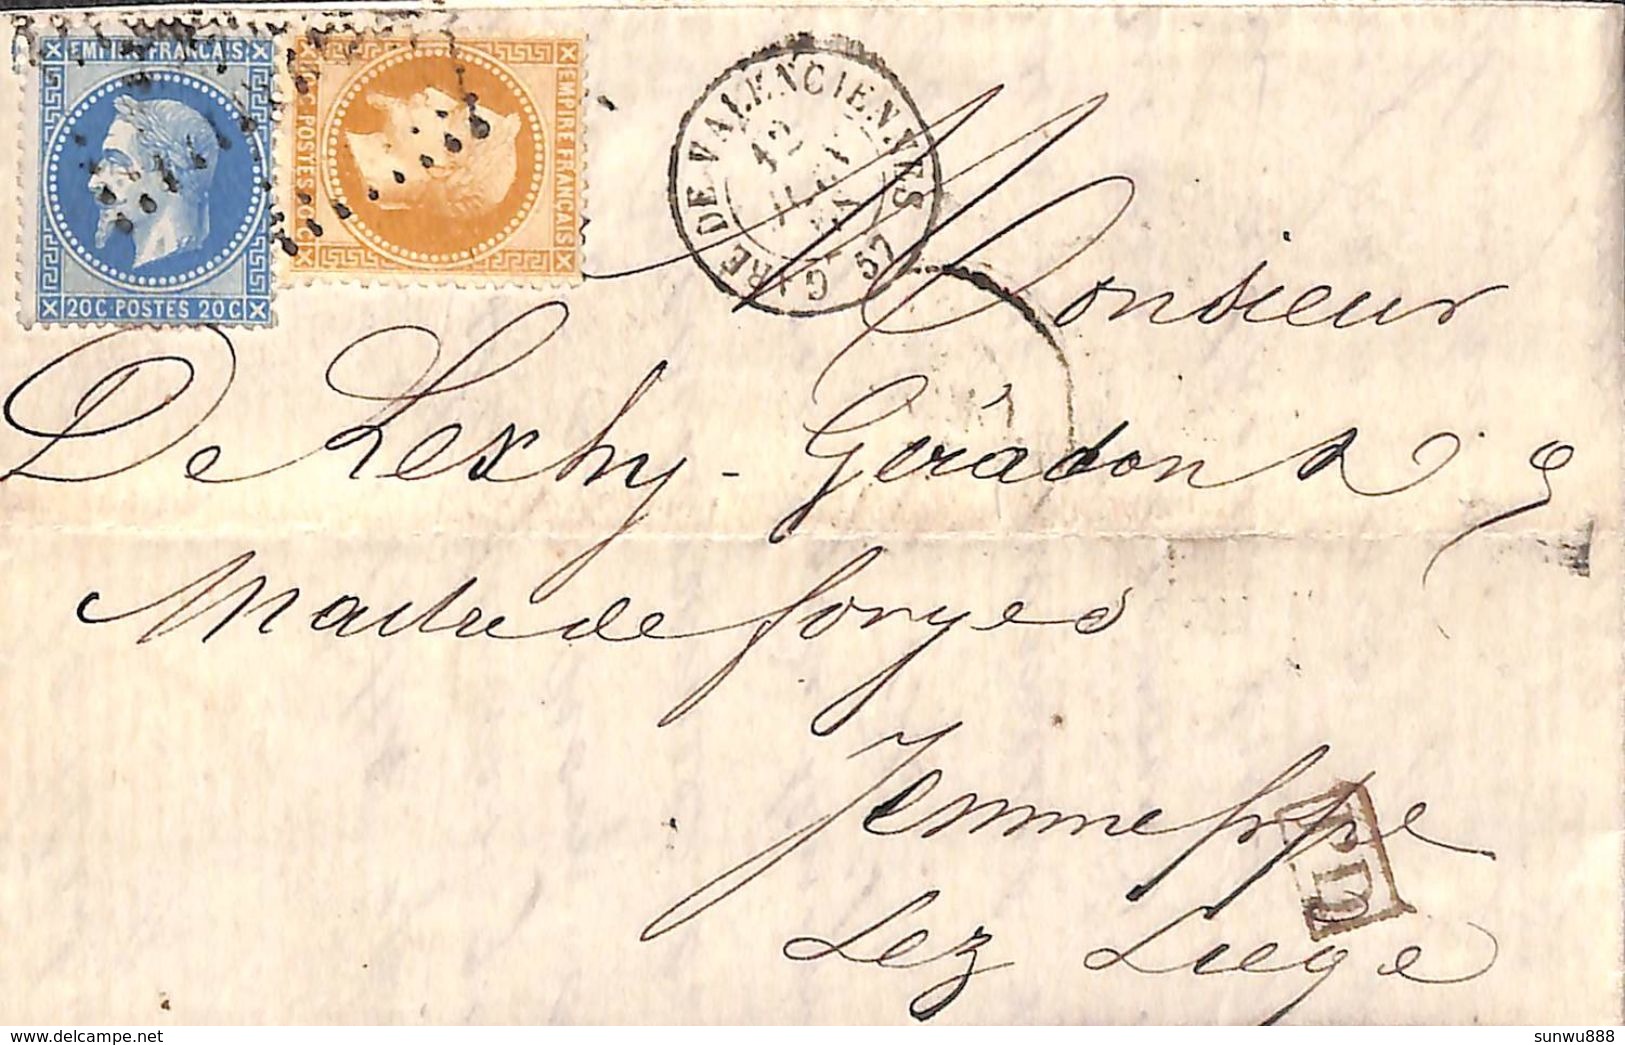 EMPIRE FRANCAIS
20C POSTES 20C
EMPIRE FRANCAIS
POSTES
GARE DE VALENCIENNES
12
57
Monsieur
De Lexhy - Géradon
Maitre de forges
Jemmeppe
Lez Liege
PD
sunwu888